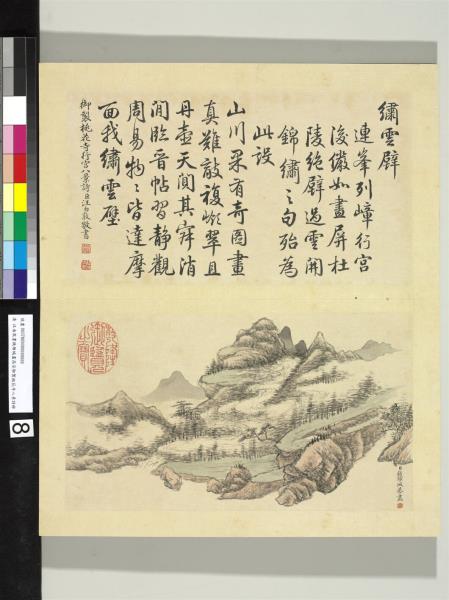 繡雲壁
連峯列嶂行宮
後儼如畫屏杜
陵絶壁過雲開
錦繡之句殆為
此設
山川果有奇圖畫
真難敵複嶺翠且
丹壺天閒其窅消
閒臨晉帖習靜觀
周易物〻皆達摩
面我繡雲壁
御製桃花寺行宮八景詩臣汪由敦敬書
臣錢維城恭畫
8